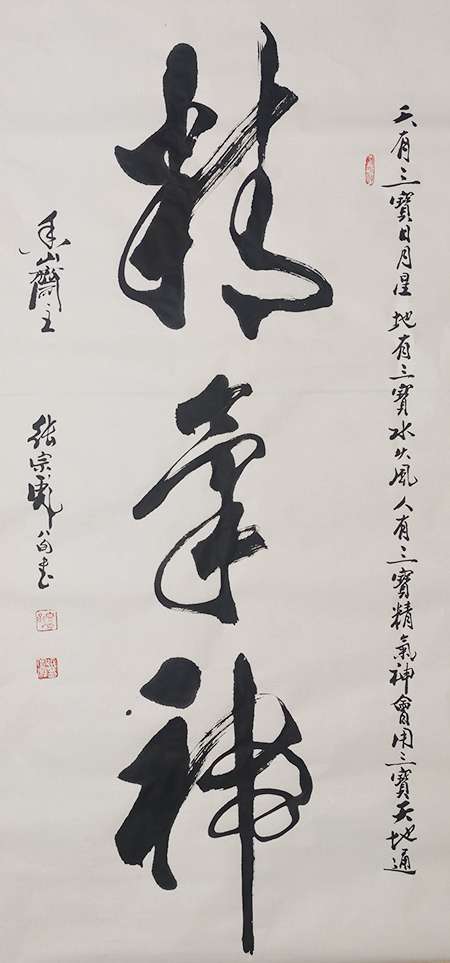 天有三寶日月星 地有三寶水火風 人有三寶精氣神 會用三寶天地通
精氣神
香山齋主 張宗 書